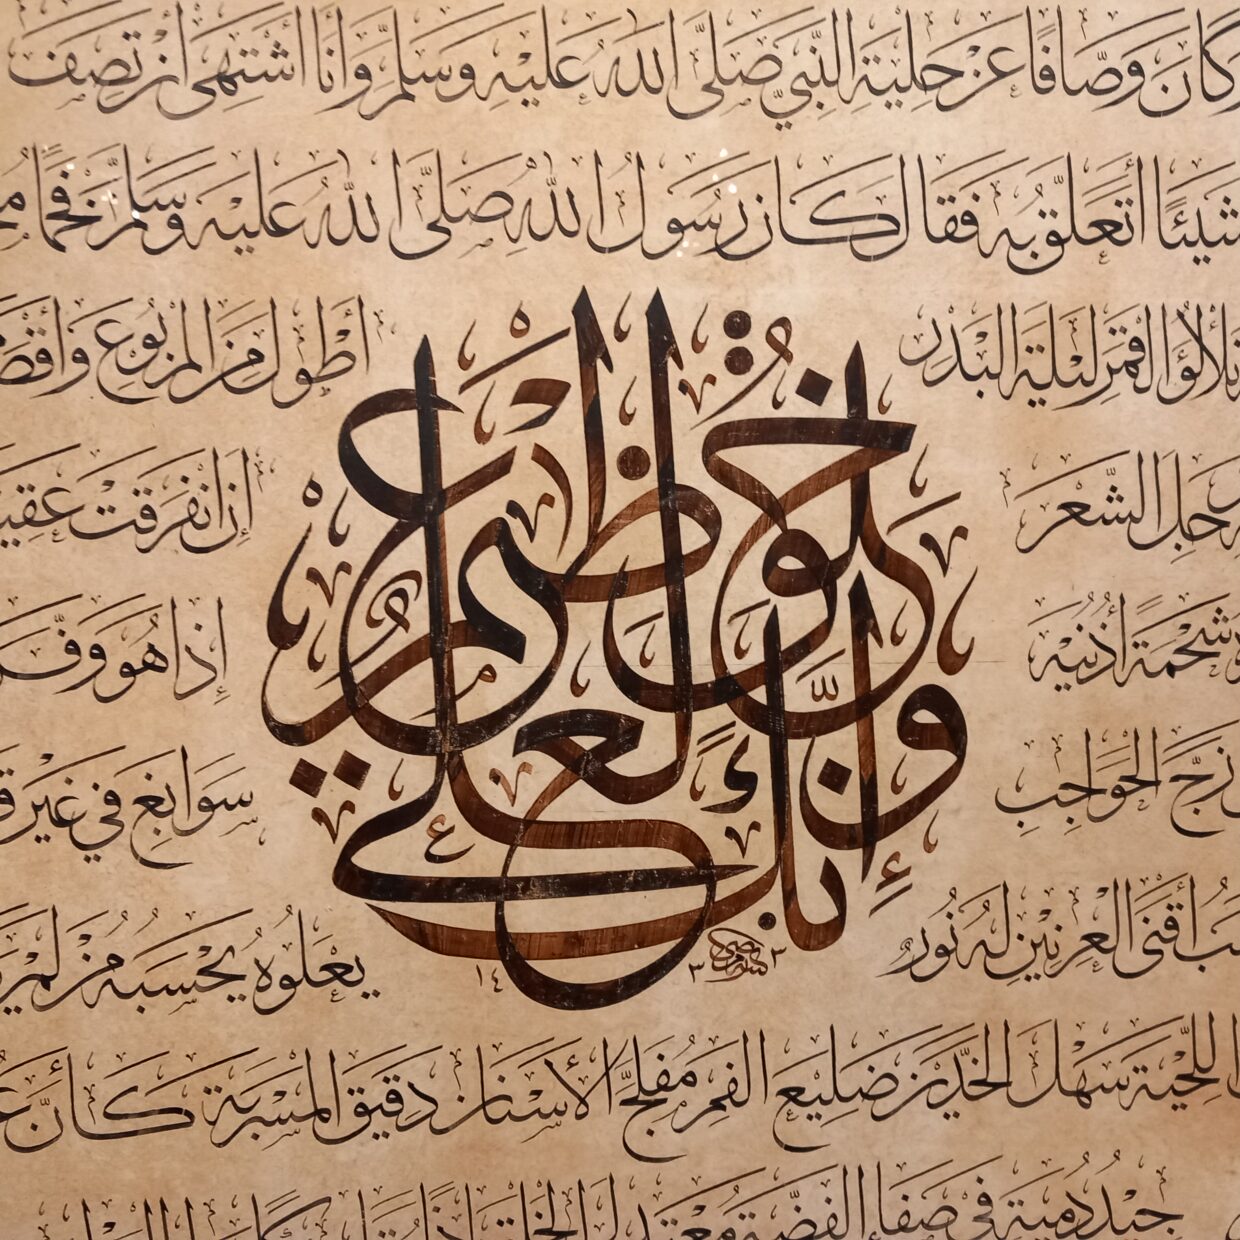 كَانَ وَصَّافًا عَنْ حِلْيَةِ النَّبِيِّ صَلَّى اللهُ عَلَيْهِ وَسَلَّمَ وَأَنَا أَشْتَهِي أَنْ تَصِفَ
شَيْئًا أَتَعَلَّقُ بِهِ فَقَالَ كَانَ رَسُولُ اللهِ صَلَّى اللهُ عَلَيْهِ وَسَلَّمَ فَخْمًا
تَلَأْلُؤَ الْقَمَرِ لَيْلَةَ الْبَدْرِ أَطْوَلَ مِنَ الْمَرْبُوعِ
رَجِلَ الشَّعَرِ إِنِ انْفَرَقَتْ
شَحْمَةَ أُذُنَيْهِ إِذَا هُوَ وَفَّرَ
أَزَجَّ الْحَوَاجِبِ سَوَابِغَ فِي غَيْرِ
وَإِنَّكَ لَعَلَى خُلُقٍ عَظِيمٍ
أَقْنَى الْعِرْنِينِ لَهُ نُورٌ يَعْلُوهُ يَحْسَبُهُ مَنْ لَمْ
١٤٣٣
اللِّحْيَةِ سَهْلَ الْخَدَّيْنِ ضَلِيعَ الْفَمِ مُفَلَّجَ الْأَسْنَانِ دَقِيقَ الْمَسْرُبَةِ كَأَنَّ
جِيدُ دُمْيَةٍ فِي صَفَاءِ الْفِضَّةِ مُعْتَدِلَ الْخَلْقِ